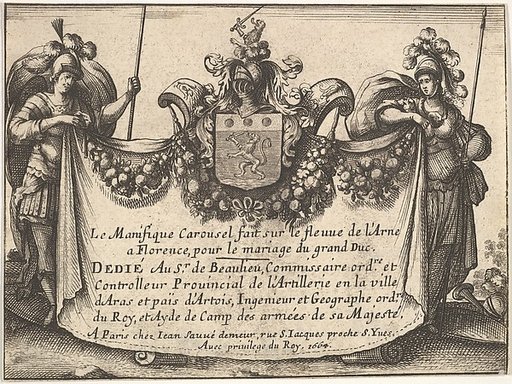 Le Manifique Carousel fait sur le fleuue de l'Arne
a Florence, pour le mariage du grand Duc.
DEDIE Au Sr. de Beaulieu, Commissaire ordre. et
Controlleur Provincial de l'Artillerie en la ville
d'Aras et païs d'Artois, Ingenieur et Geographe ordre.
du Roy, et Ayde de Camp des armées de sa Majesté.
A Paris chez Iean Sauué demeur, rue S. Iacques proche S. Yues.
Avec privilege du Roy. 1664.